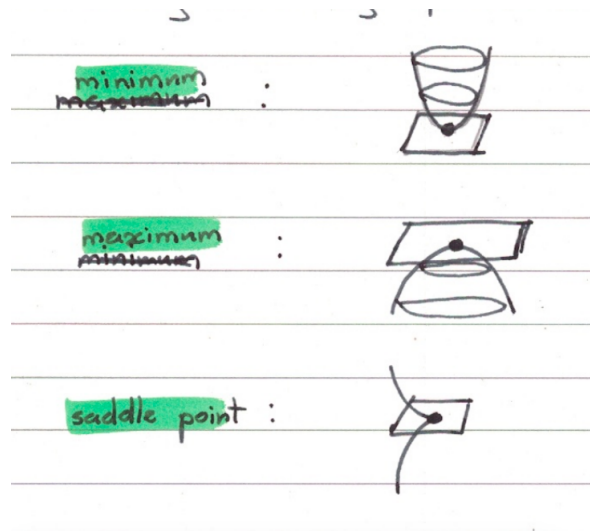 minimum :
maximum
maximum :
minimum
saddle point :